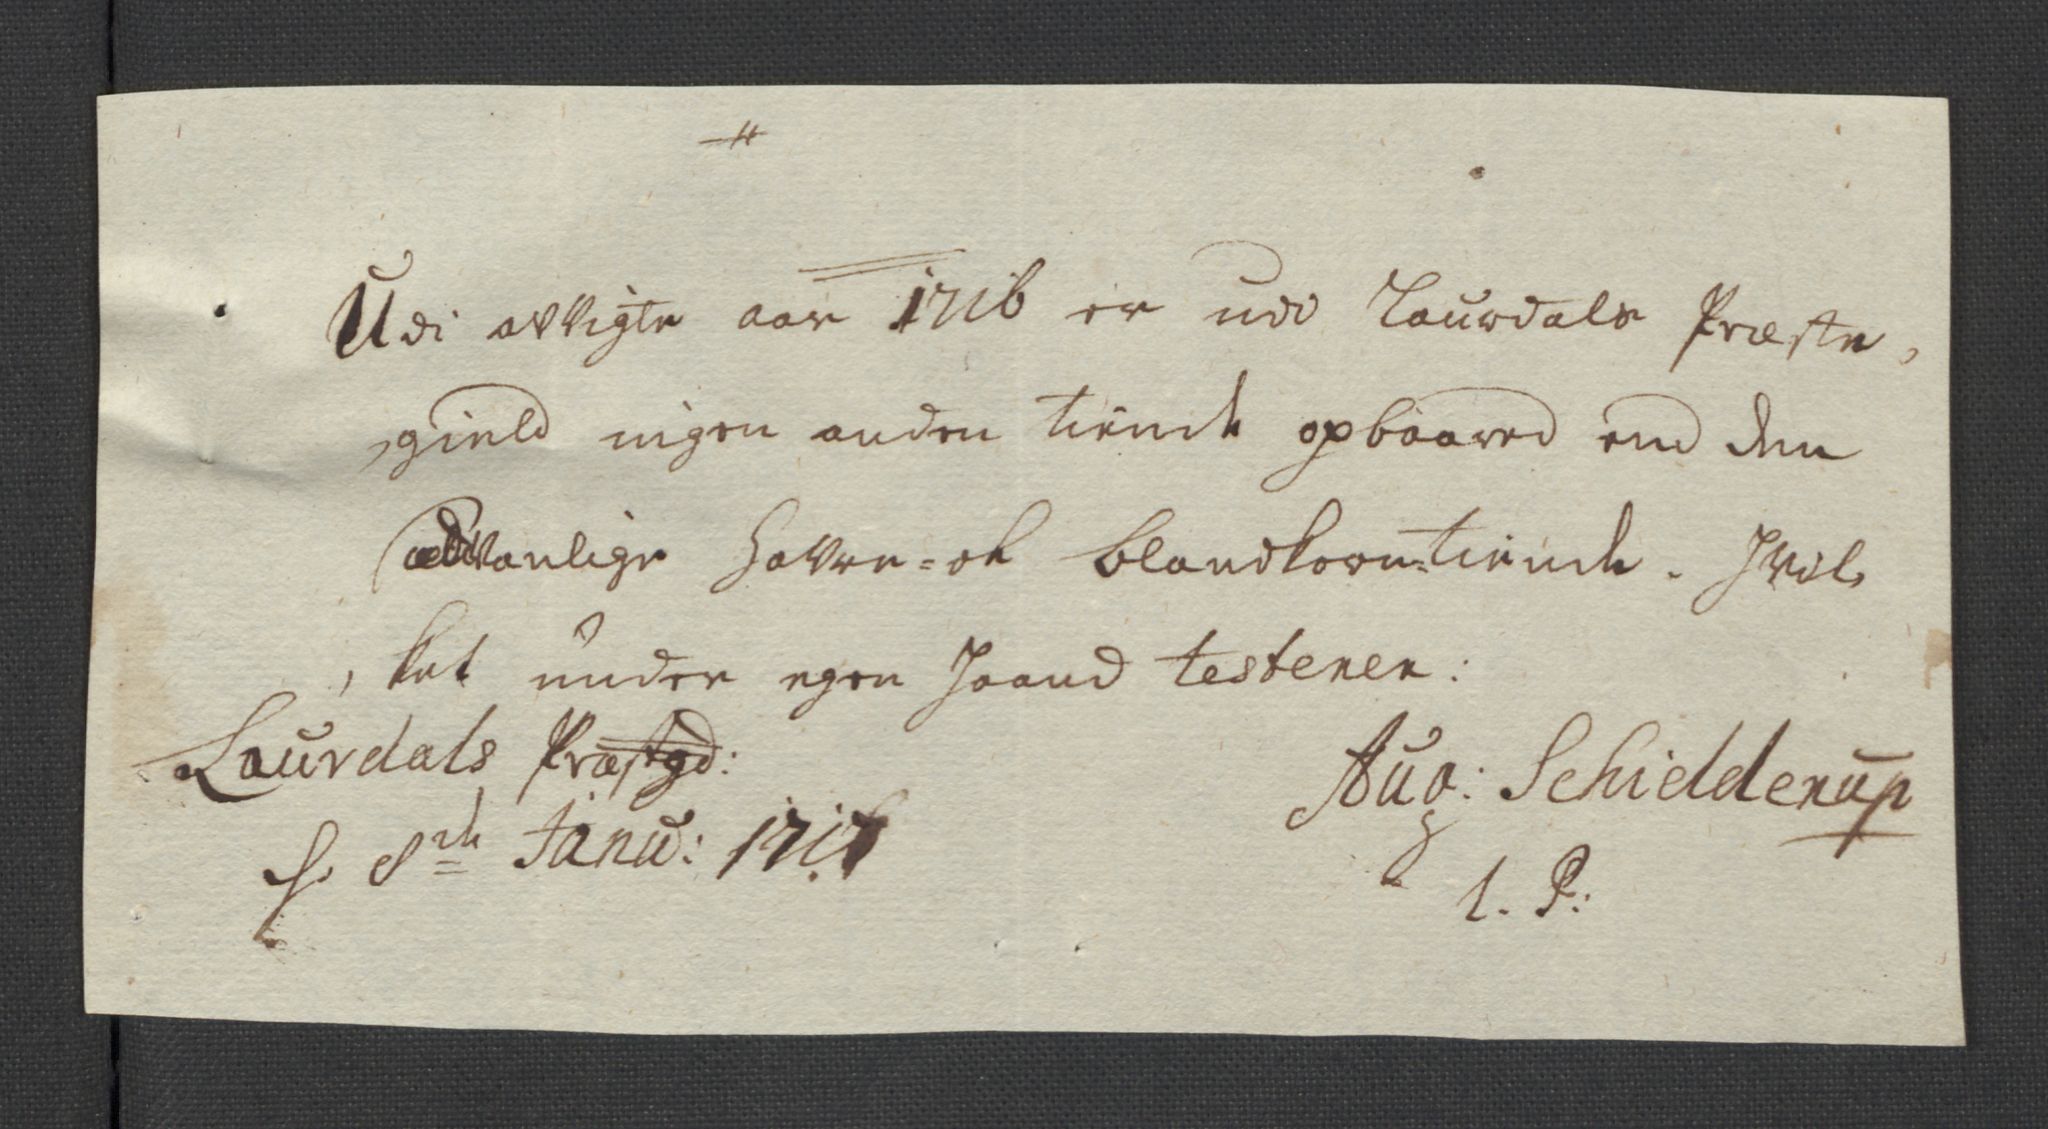 Udi avvigte aar 1716 er udi Laurdals Præste,
,gield ingen anden tiende opbaaren end den
sædvanlige Havre=ok blandkorn=tiende. Hvil,
,ket under egen Haand testerer:
Laurdals Præstgd:
d. 8de Janu: 1717
Aug: Schielderup
l. P: